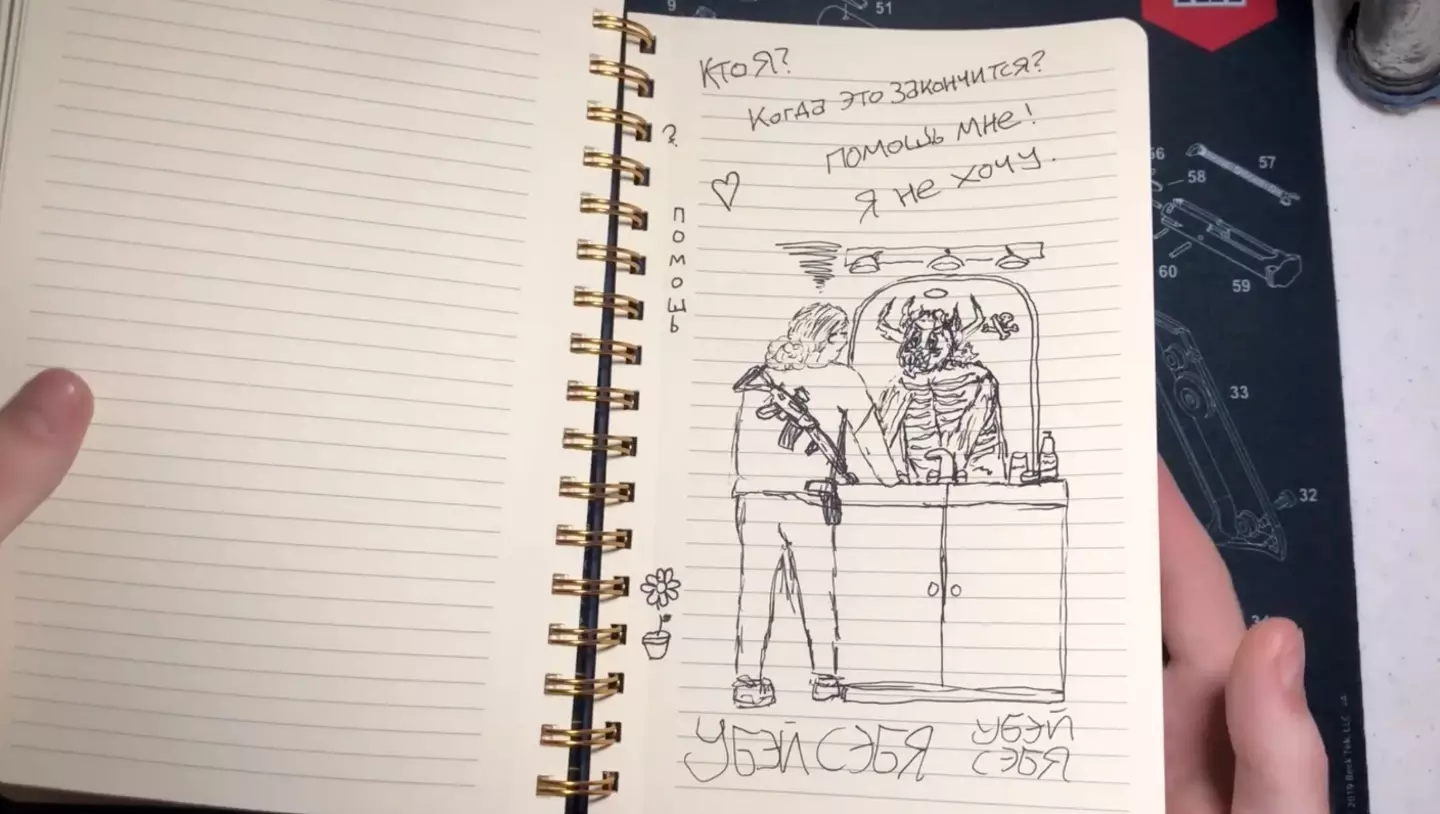 51
9
Кто я?
Когда это закончится?
помошь мне!
я не хочу.
?
помошь
56
57
58
60
59
33
32
34
убэй сэбя
убэй
сэбя
2019 Beck Tek, LLC